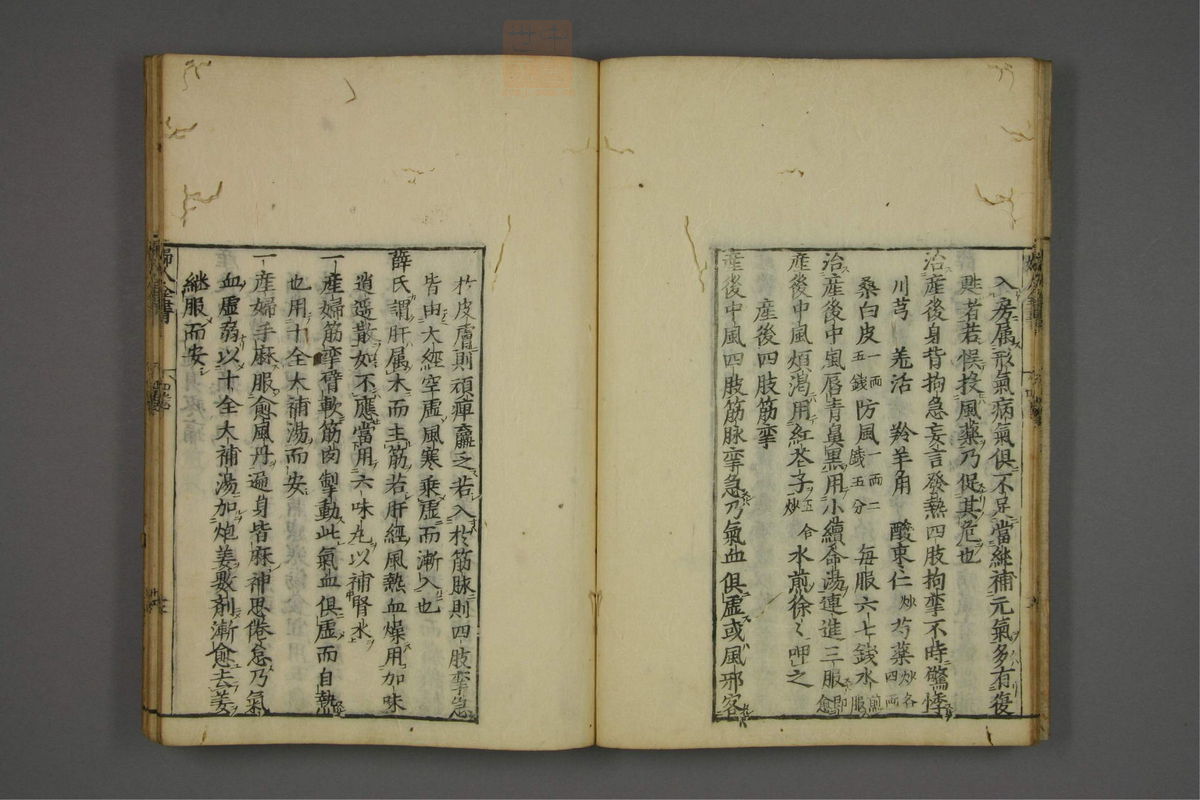 入房属形氣病氣俱不足當純補元氣多有復
甦者若悞投風藥乃促其危也
治産後身背拘急妄言發熱四肢拘攣不時驚悸
川芎 羗活 羚羊角 酸枣仁炒 芍藥炒各四両
桑白皮一両五錢 防風一両二錢五分 每服六七錢水煎服
治産後中風唇青鼻黒用小續命湯連進三服即愈
産後中風煩渴用紅花子五合炒水煎徐〻呷之
産後四肢筋攣
産後中風四肢筋脉攣急乃氣血俱虛或風邪客
於皮膚則頑痺羸乏若入於筋脉則四肢攣急
皆由大經空虛風寒乘虛而漸入也
薛氏謂肝属木而主筋若肝經風熱血燥用加味
逍遥散如不應當用六味丸以補腎水
一産婦筋攣臂軟筋肉掣動此氣血俱虛而自熱
也用十全大補湯而安
一産婦手麻服愈風丹遍身皆麻神思倦怠乃氣
血虛弱以十全大補湯加炮姜數劑漸愈去姜
継服而安
婦人全書